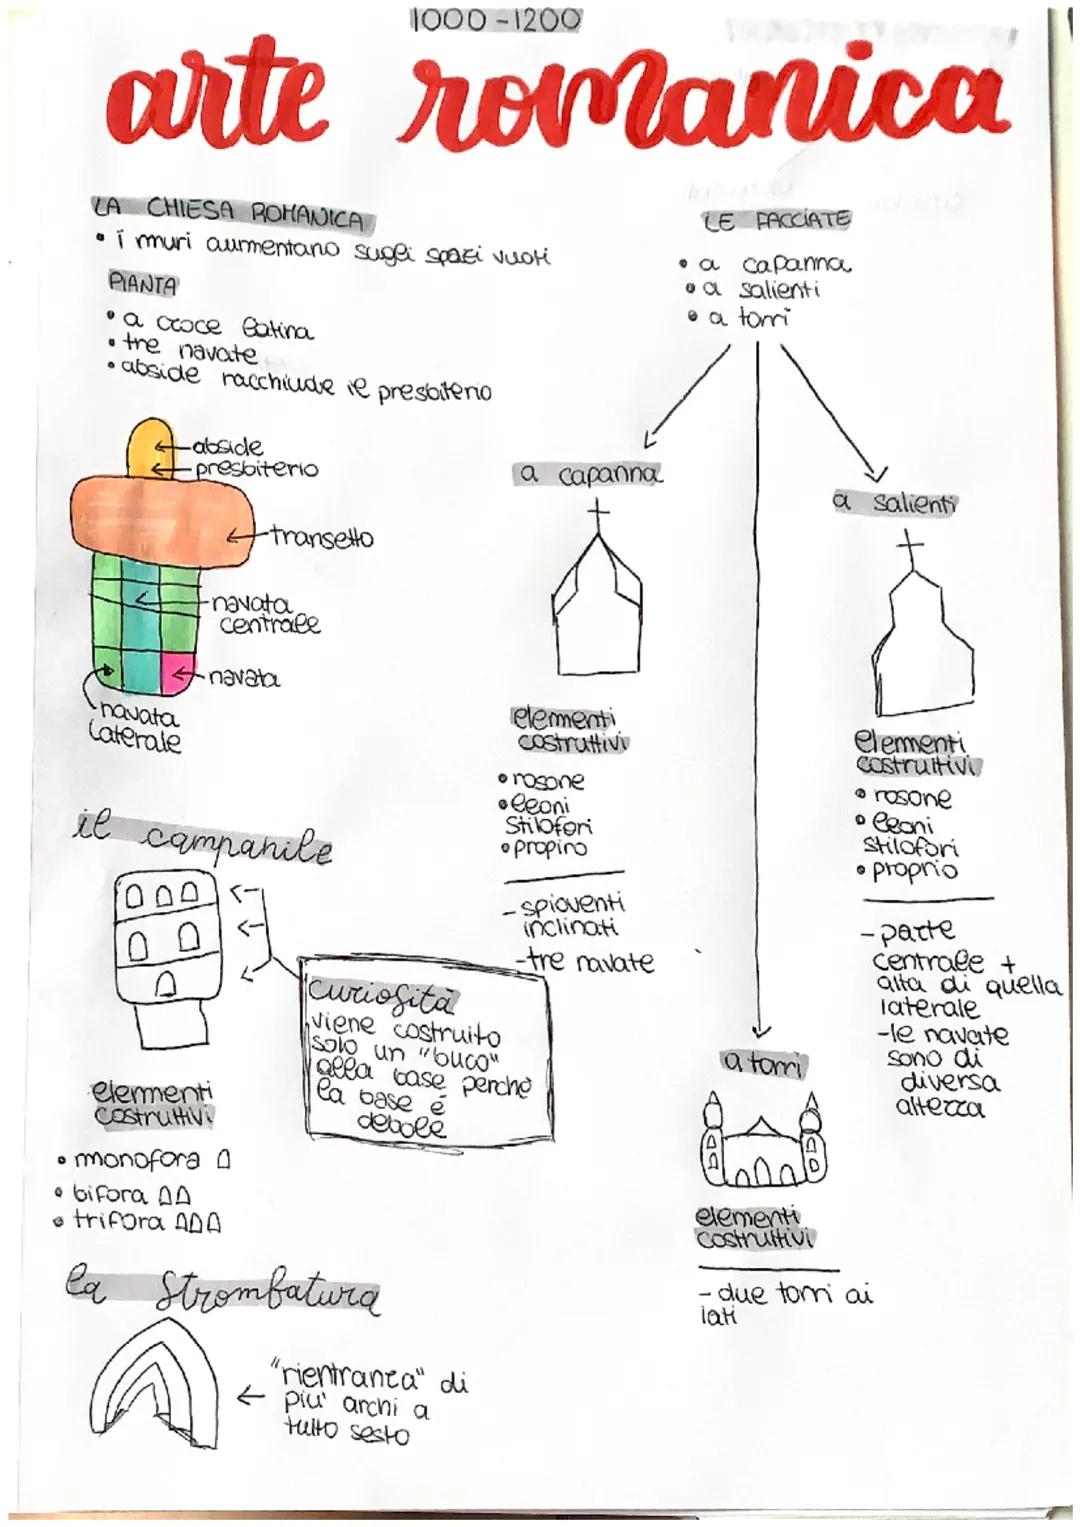 1000-1200
arte romanica
LA CHIESA ROMANICA
• i muri aumentano sugli spazi vuoti
PIANTA
• a croce latina
• tre navate
• abside racchiude il presbiterio
abside
presbiterio
transetto
navata
centrale
navata
navata
laterale
il campanile
curiosità
viene costruito
solo un "buco"
alla base perché
la base è
debole
elementi
costruttivi
• monofora
• bifora
• trifora
la strombatura
"rientranza" di
piu' archi a
tutto sesto
LE FACCIATE
• a capanna
• a salienti
• a torri
a capanna
elementi
costruttivi
• rosone
• leoni
stilofori
• propino
- spioventi
inclinati
- tre navate
a salienti
elementi
costruttivi
• rosone
• leoni
stilofori
• proprio
- parte
centrale +
alta di quella
laterale
- le navate
sono di
diversa
altezza
a torri
elementi
costruttivi
- due torri ai
lati